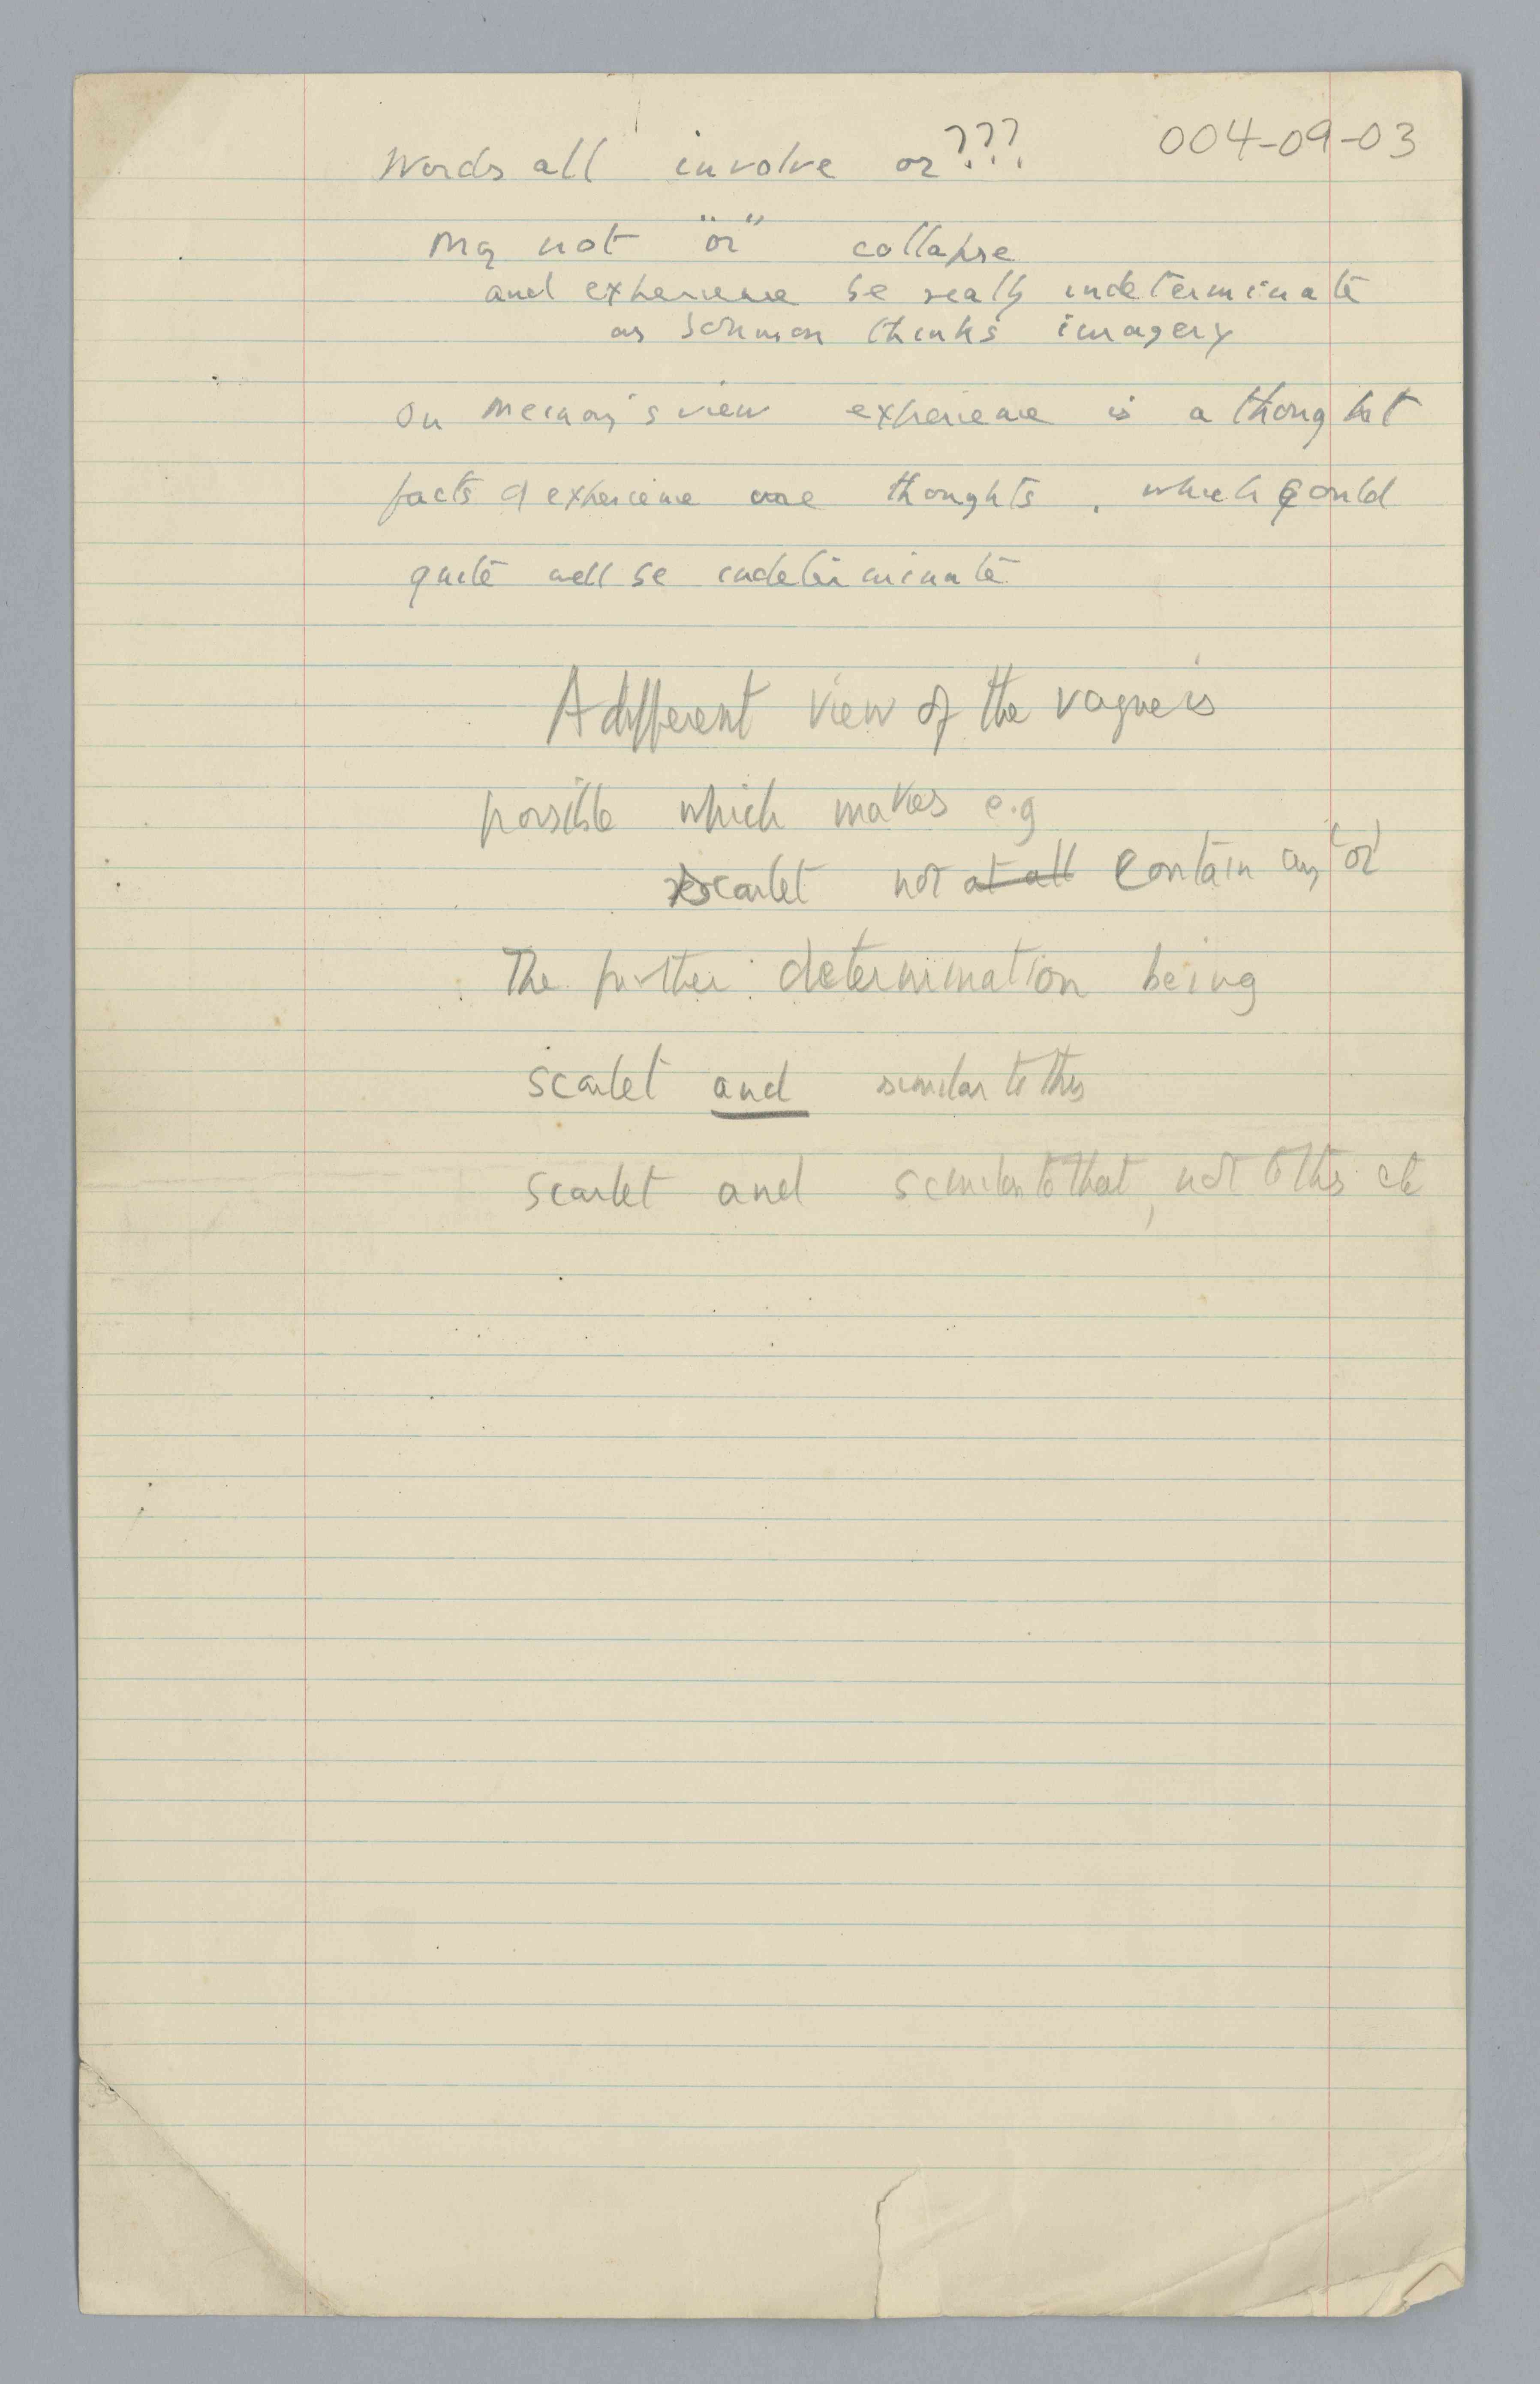 004-09-03
Words all involve or???
May not "or" collapse
and experience be really indeterminate
as Johnson thinks imagery
On Memory's view experience is a thought
facts of experience are thoughts, which could
quite well be indeterminate
A different view of the vague is
possible which makes e.g
scarlet not at all contain any 'or'
The further determination being
scarlet and similar to this
scarlet and similar to that, not to this etc